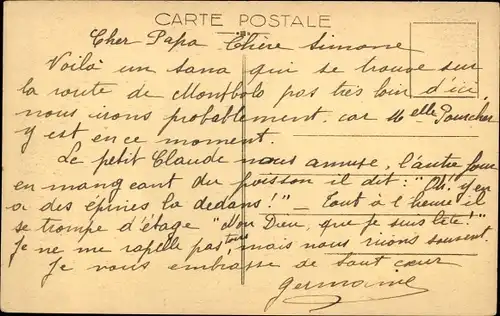 CARTE POSTALE
Cher Papa Chère Simone
Voilà un sana qui se trouve sur
la route de Montbolo pas très loin d'ici,
nous irons probablement car Melle Pourcher
y est en ce moment.
Le petit Claude nous amuse, l'autre jour
en mangeant du poisson il dit: "Oh! y en
a des épines la dedans!" _ Tout à l'heure il
se trompe d'étage "Mon Dieu, que je suis bête!"
Je ne me rapelle pas tous, mais nous rions souvent.
Je vous embrasse de tout cœur
Germaine